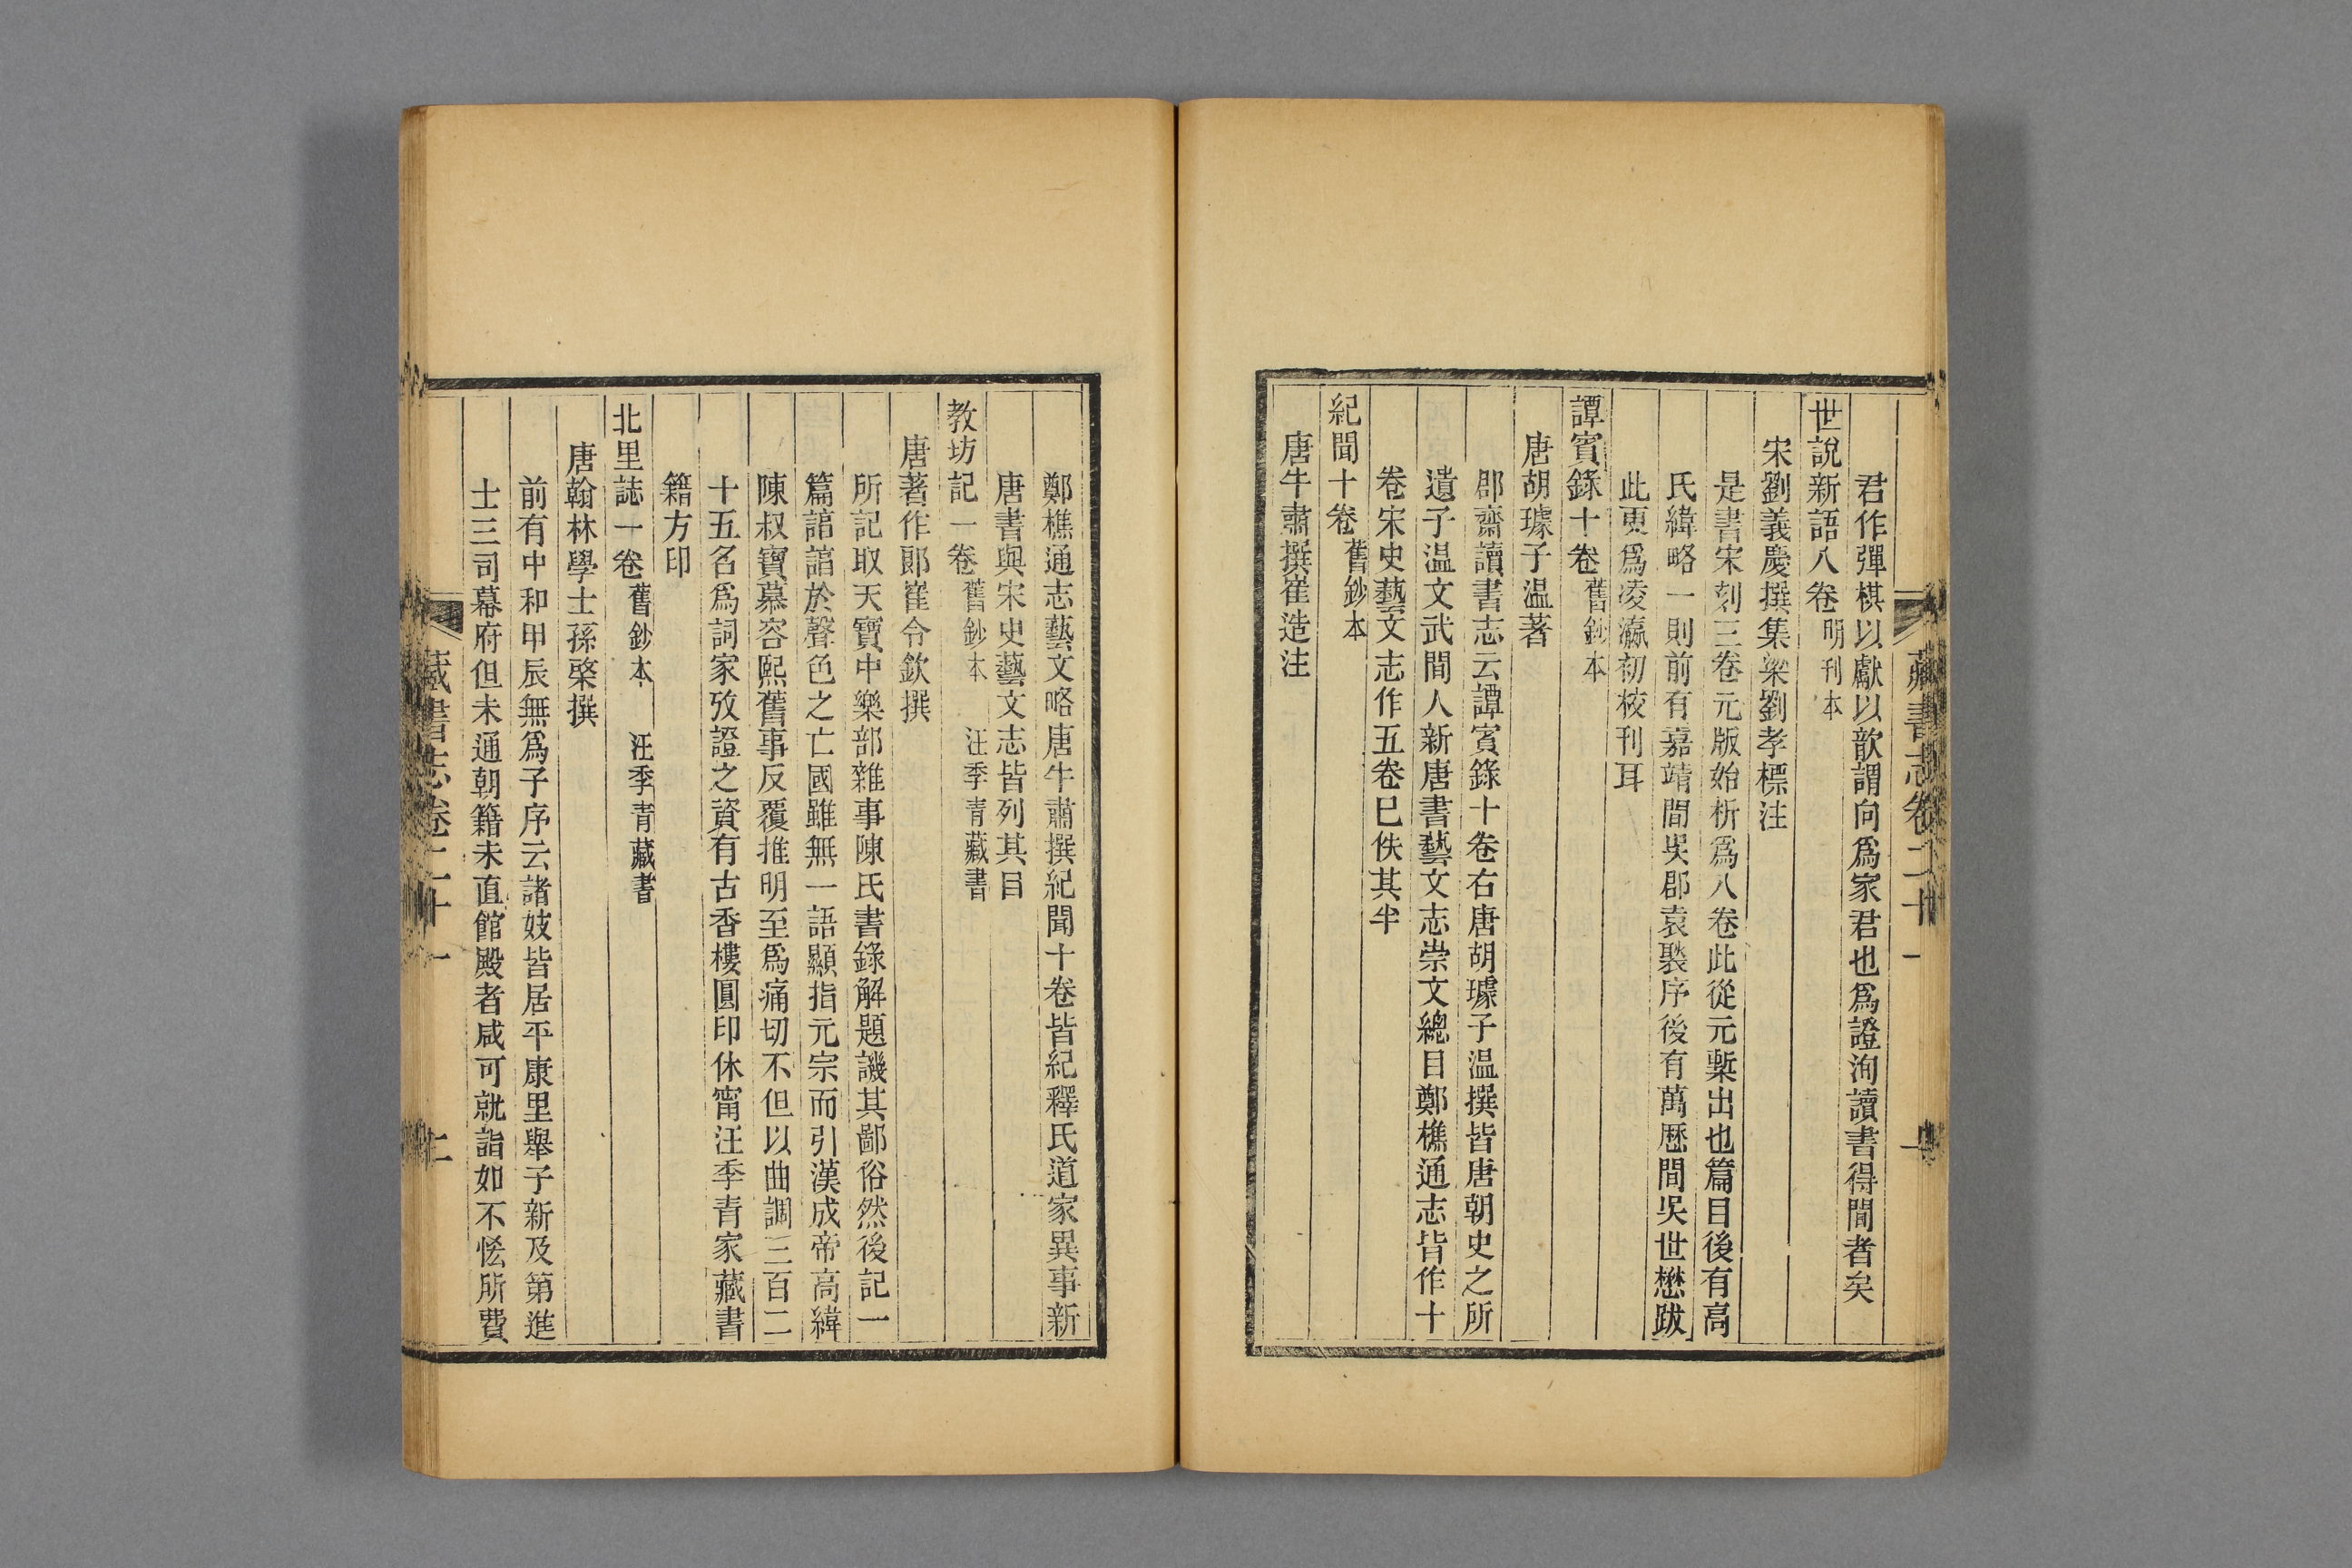 藏書志卷二十一
君作彈棋以獻以歆謂向爲家君也爲證洵讀書得閒者矣
世說新語八卷 明刊本
宋劉義慶撰集梁劉孝標注
是書宋刻三卷元版始析爲八卷此從元槧出也篇目後有高
氏緯略一則前有嘉靖間吳郡袁褧序後有萬歷間吳世懋跋
此更爲凌瀛初校刊耳
譚賓錄十卷 舊鈔本
唐胡璩子温著
郡齋讀書志云譚賓錄十卷右唐胡璩子温撰皆唐朝史之所
遺子温文武間人新唐書藝文志崇文總目鄭樵通志皆作十
卷宋史藝文志作五卷巳佚其半
紀聞十卷 舊鈔本
唐牛肅撰崔造注
鄭樵通志藝文略唐牛肅撰紀聞十卷皆紀釋氏道家異事新
唐書與宋史藝文志皆列其目
教坊記一卷 舊鈔本 汪季青藏書
唐著作郎崔令欽撰
所記取天寶中樂部雜事陳氏書錄解題譏其鄙俗然後記一
篇諳諳於聲色之亡國雖無一語顯指元宗而引漢成帝高緯
陳叔寶慕容熙舊事反覆推明至爲痛切不但以曲調三百二
十五名爲詞家攷證之資有古香樓圓印休甯汪季青家藏書
籍方印
北里誌一卷 舊鈔本 汪季青藏書
唐翰林學士孫棨撰
前有中和甲辰無爲子序云諸妓皆居平康里舉子新及第進
士三司幕府但未通朝籍未直館殿者咸可就詣如不恡所費
藏書志卷二十一